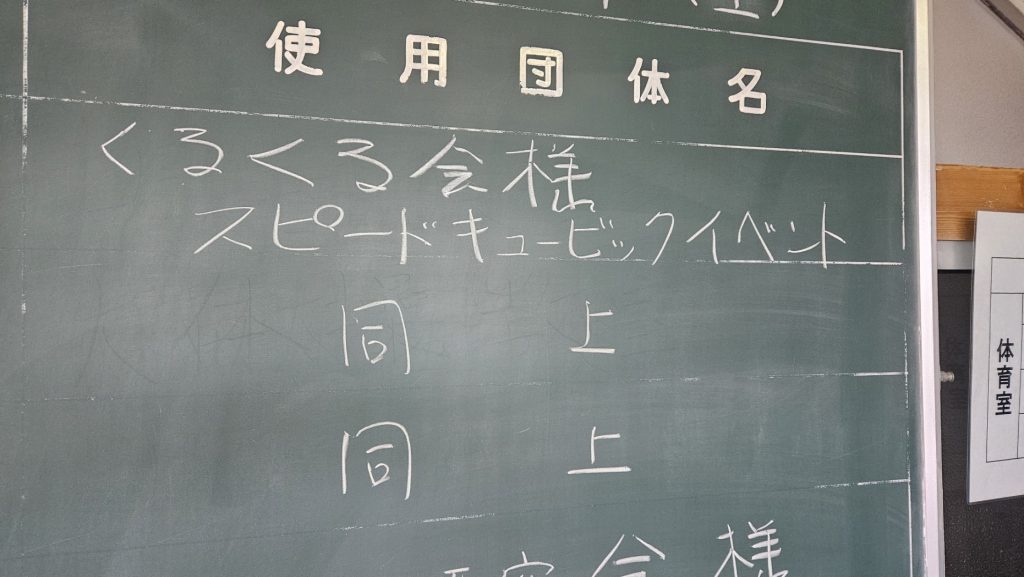 (土)
使用団体名
くるくる会様
スピードキュービックイベント
同 上
同 上
会様
体育室